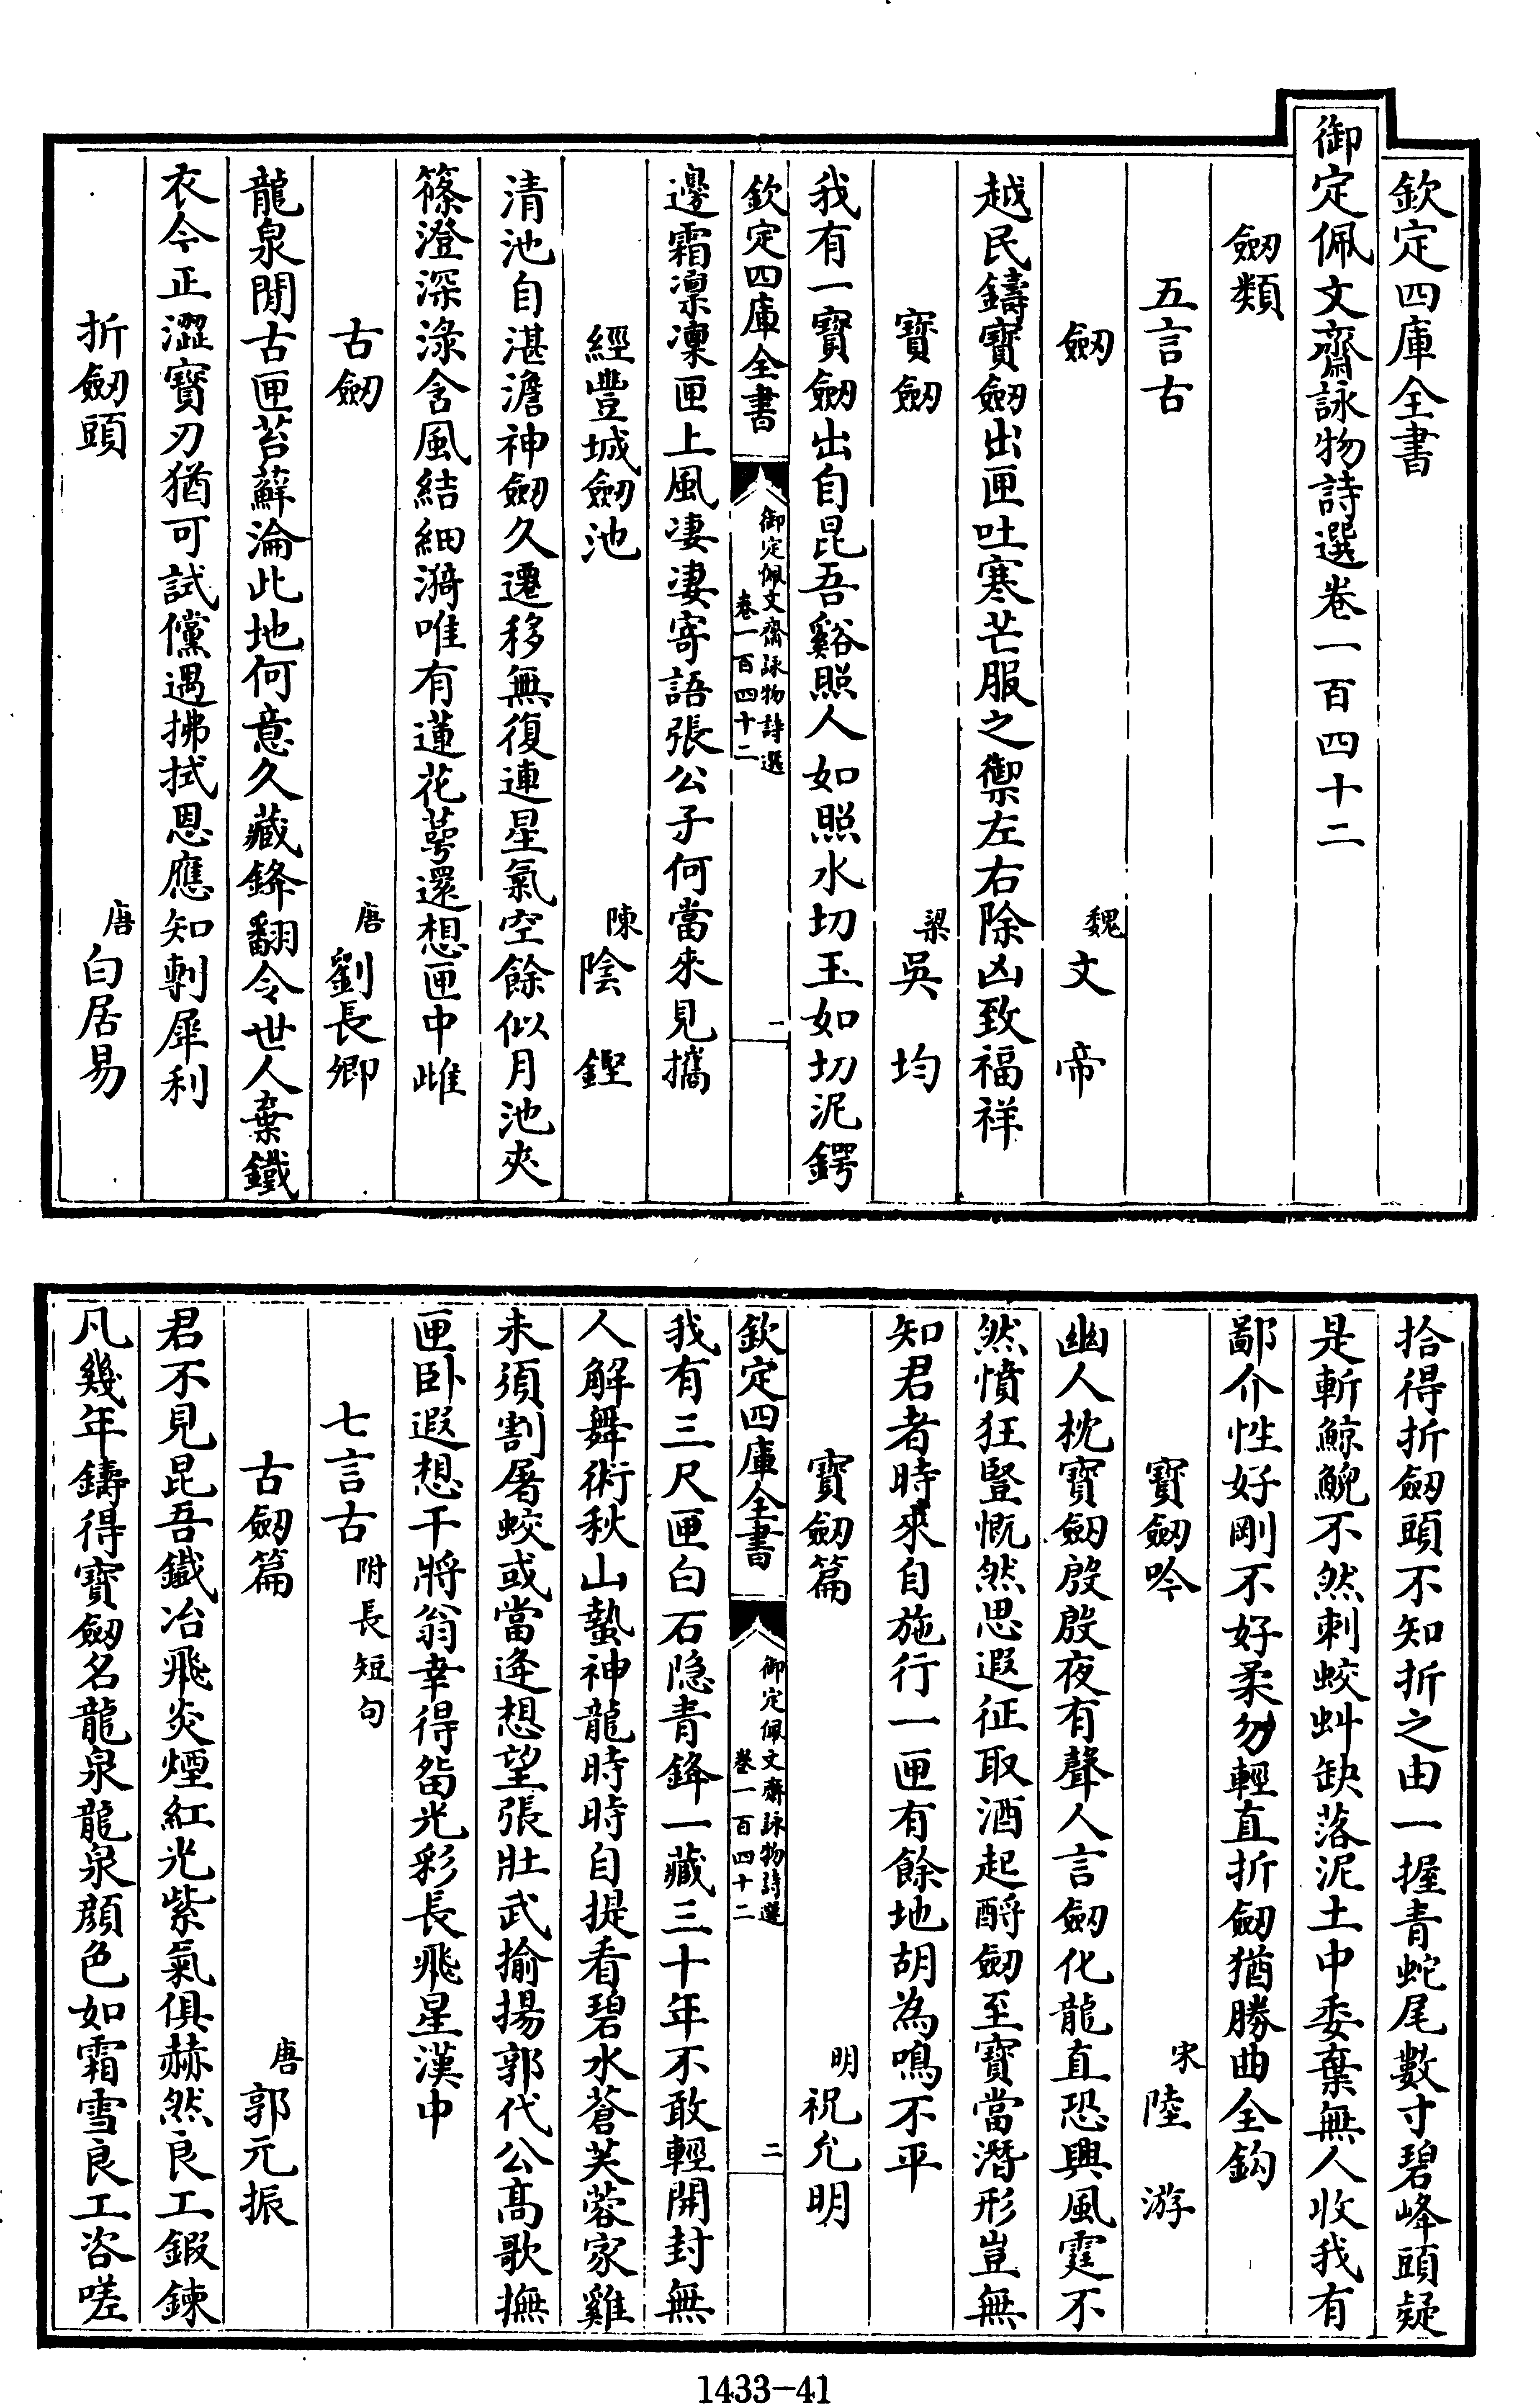 欽定四庫全書
御定佩文齋詠物詩選卷一百四十二
劒類
五言古
劒 魏文帝
越民鑄寶劒出匣吐寒芒服之禦左右除凶致福祥
寶劒 梁吳均
我有一寶劒出自昆吾谿照人如照水切玉如切泥鍔
欽定四庫全書 御定佩文齋詠物詩選 卷一百四十二 一
邊霜凛凛匣上風凄凄寄語張公子何當來見攜
經豐城劒池 陳陰鏗
清池自湛澹神劒久遷移無復連星氣空餘似月池夾
篠澄深淥含風結細漪唯有蓮花萼還想匣中雌
古劒 唐劉長卿
龍泉閒古匣苔蘚淪此地何意久藏鋒翻令世人棄鐵
衣今正澀寶刃猶可試儻遇拂拭恩應知剸犀利
折劒頭 唐白居易
拾得折劒頭不知折之由一握青蛇尾數寸碧峰頭疑
是斬鯨鯢不然刺蛟虯缺落泥土中委棄無人收我有
鄙介性好剛不好柔勿輕直折劒猶勝曲全鈎
寶劒吟 宋陸游
幽人枕寶劒殷殷夜有聲人言劒化龍直恐興風霆不
然憤狂豎慨然思遐征取酒起酹劒至寶當潛形豈無
知君者時來自施行一匣有餘地胡為鳴不平
寶劒篇 明祝允明
欽定四庫全書 御定佩文齋詠物詩選 卷一百四十二 二
我有三尺匣白石隱青鋒一藏三十年不敢輕開封無
人解舞術秋山蟄神龍時時自提看碧水蒼芙蓉家雞
未須割屠蛟或當逄想望張壯武揄揚郭代公高歌撫
匣卧遐想干將翁幸得留光彩長飛星漢中
七言古 附長短句
古劒篇 唐郭元振
君不見昆吾鐵冶飛炎煙紅光紫氣俱赫然良工鍜鍊
凡幾年鑄得寶劒名龍泉龍泉顔色如霜雪良工咨嗟
1433-41